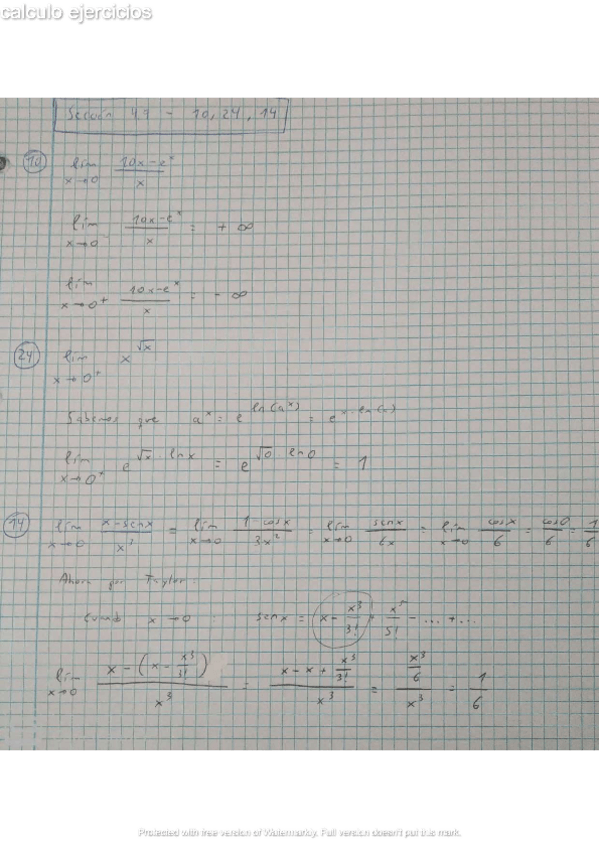 calculo ejercicios
Sección 4.7 - 10, 24, 14
10 lim x→0 (10x-e^x)/x
lim x→0⁻ (10x-e^x)/x = +∞
lim x→0⁺ (10x-e^x)/x = -∞
24 lim x→0⁺ x^√x
Sabemos que a^x = e^ln(a^x) = e^x·ln(a)
lim x→0⁺ e^√x·lnx = e^√0·ln0 = 1
14 lim x→0 (x-senx)/x³ = lim x→0 (1-cosx)/3x² = lim x→0 senx/6x = lim x→0 cosx/6 = cos0/6 = 1/6
Ahora por Taylor:
Cuando x→0 : senx = x - x³/3! + x⁵/5! - ... + ...
lim x→0 (x-(x-x³/3!))/x³ = (x-x+x³/3!)/x³ = (x³/6)/x³ = 1/6
Protected with free version of Watermarkly. Full version doesn't put this mark.